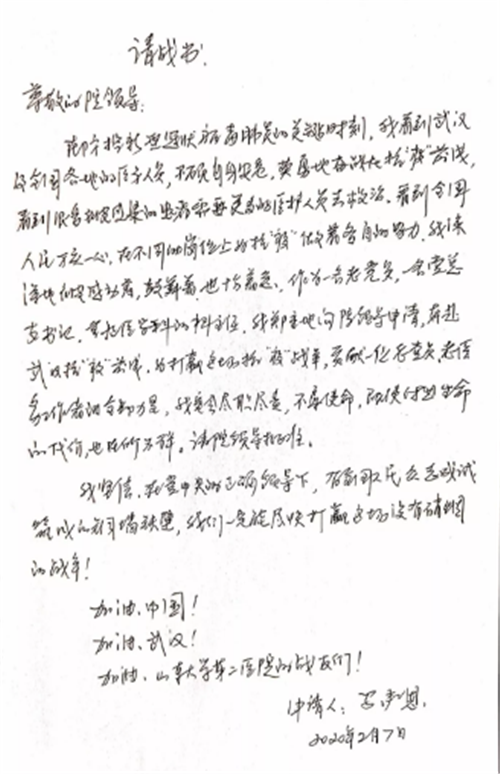 请战书
尊敬的院领导：
在抗击新型冠状病毒肺炎的关键时刻，我看到武汉
及全国各地的医务人员，不顾自身安危，英勇地奋战在抗"疫"前线，
看到很多被感染的患者需要更多的医护人员去救治。看到全国
人民万众一心，在不同的岗位上为抗"疫"做着各自的努力。我深
深地被感动着，鼓舞着，也着急。作为一名老党员，一名党总
支书记，医学科的科主任，我郑重地向院领导申请，奔赴
武汉抗"疫"前线，为打赢这场抗"疫"战争，贡献一位老党员，老医
务工作者的全部力量，我会尽职尽责，不辱使命，即使付出生命
的代价，也在所不辞。请院领导批准。
我坚信，在党中央的正确领导下，有全国人民众志成城
筑成的铜墙铁壁，我们一定能尽快打赢这场没有硝烟
的战争！
加油、中国！
加油、武汉！
加油、山东大学第二医院的战友们！
申请人：
2020年2月7日